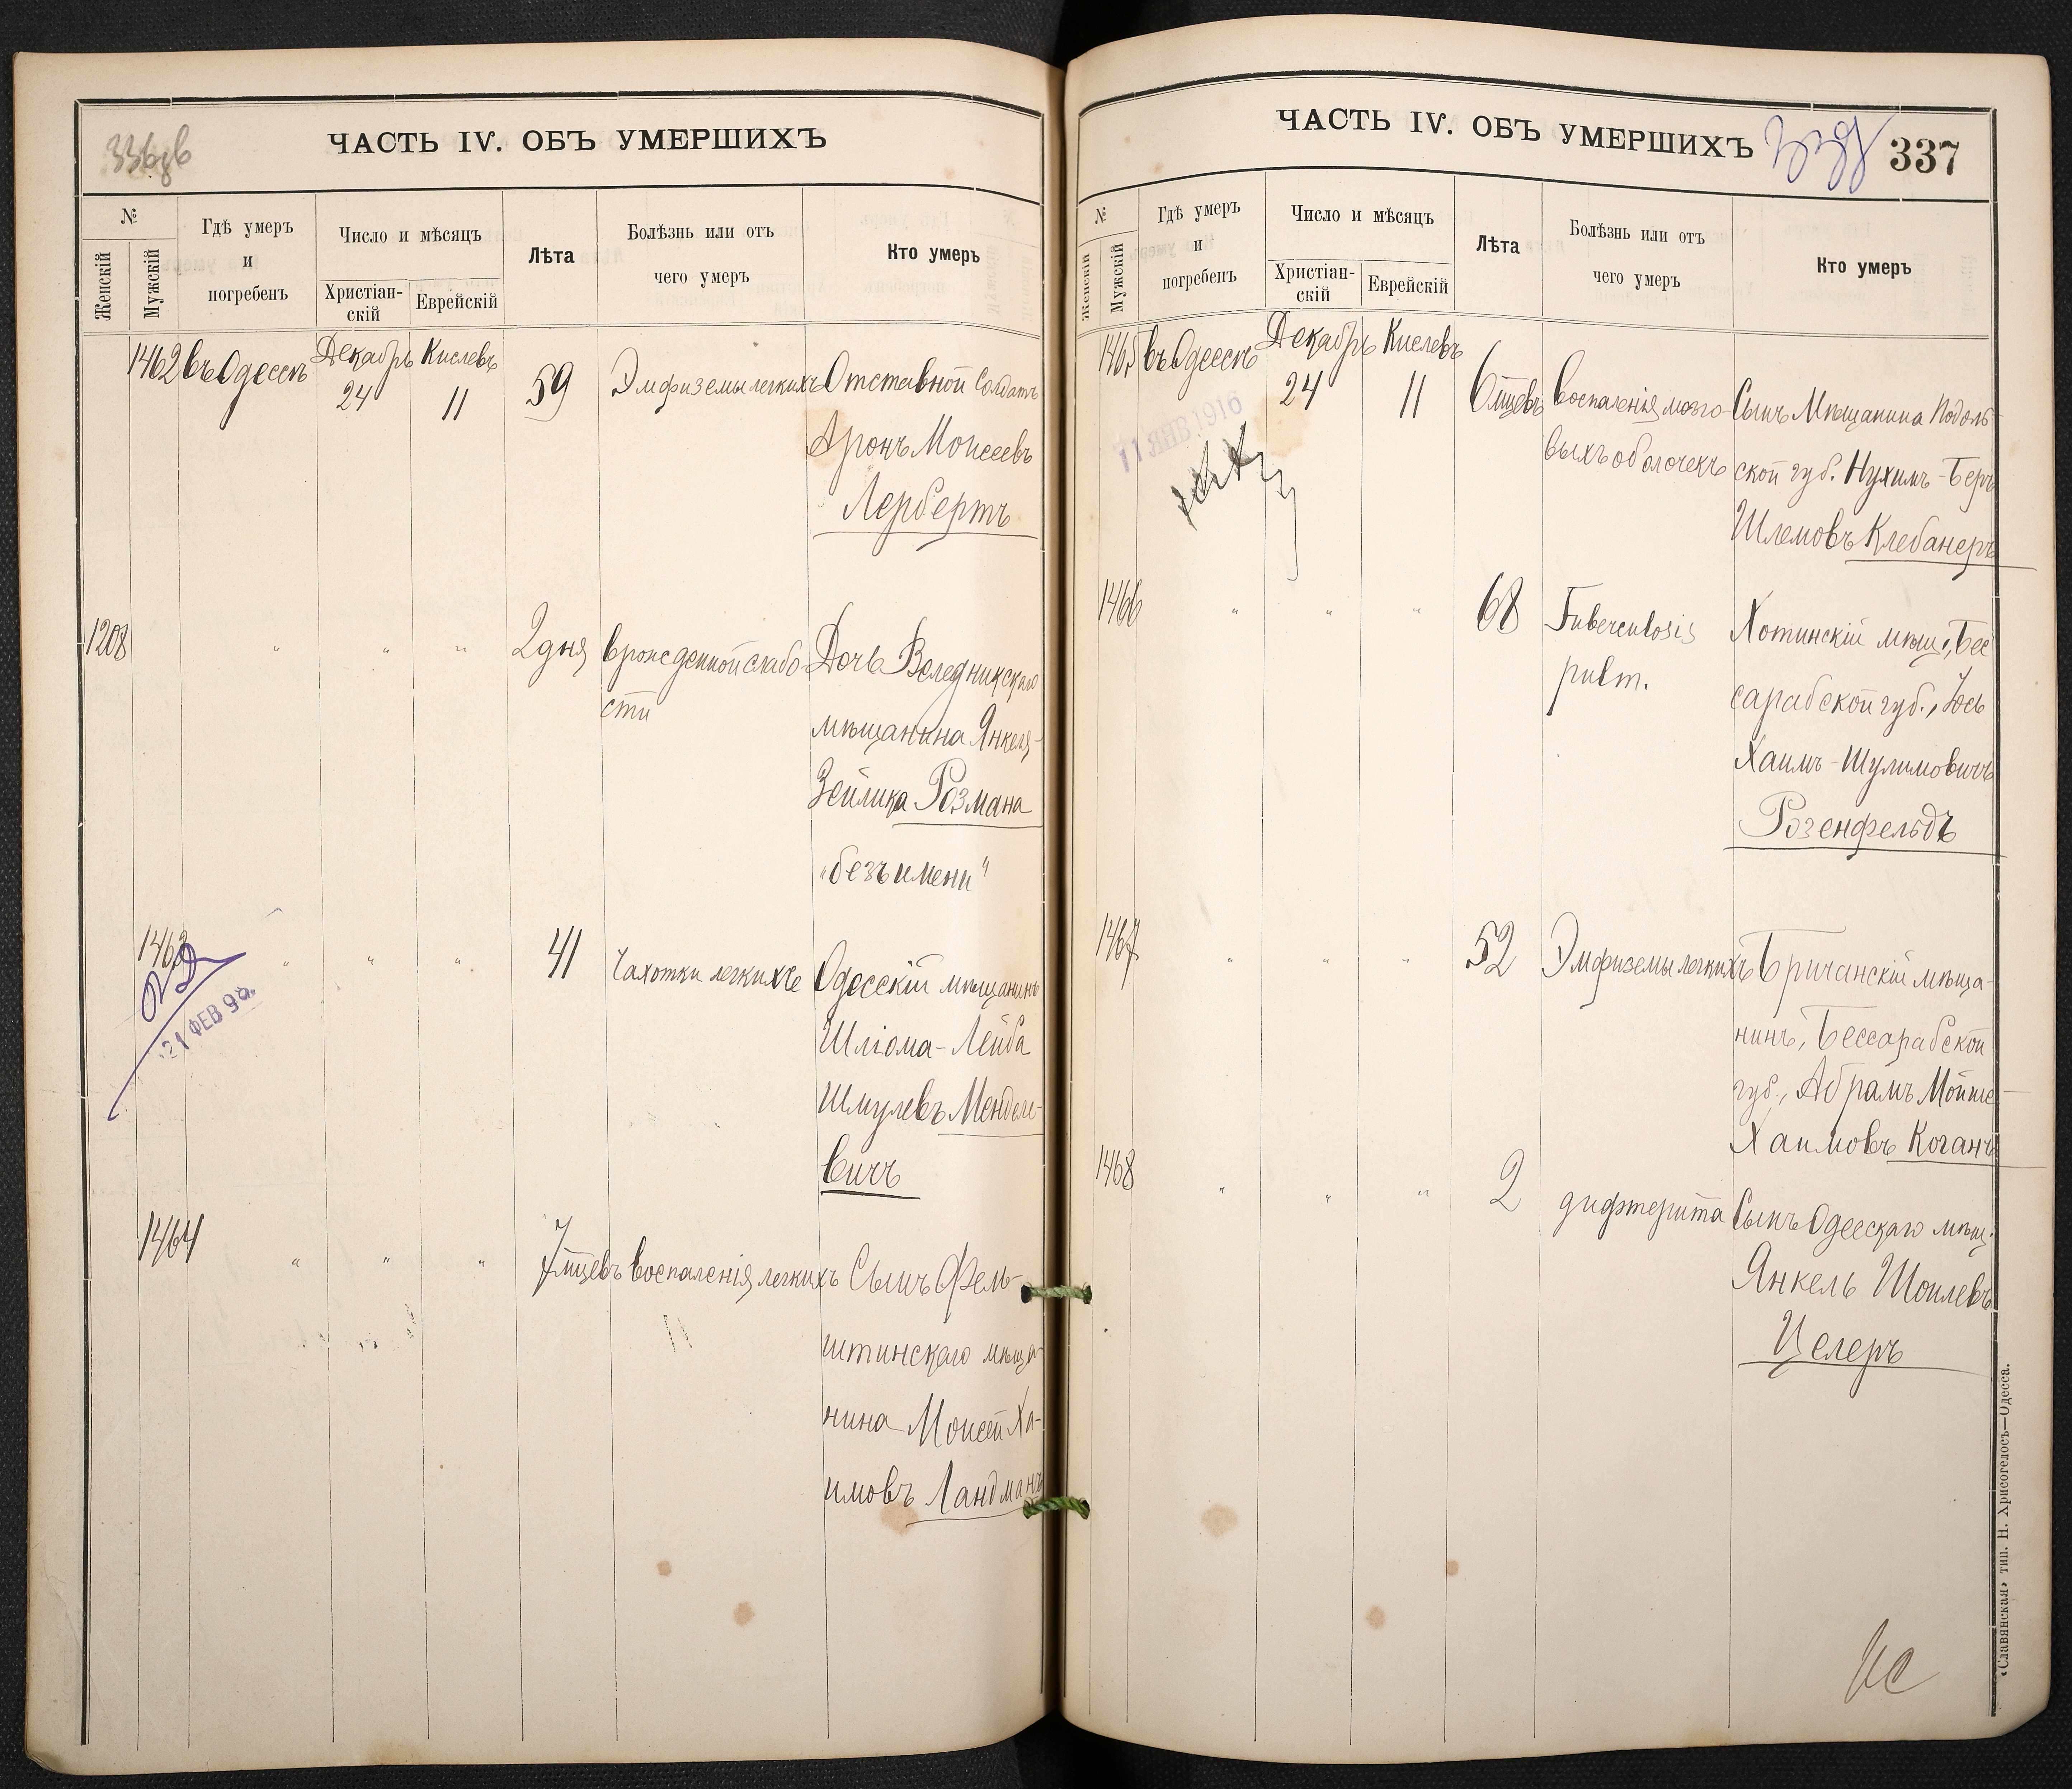 ЧАСТЬ IV. ОБЪ УМЕРШИХЪ
№
Женскій
Мужскій
Гдѣ умеръ
и
погребенъ
Число и мѣсяцъ
Христіан-
скій
Еврейскій
Лѣта
Болѣзнь или отъ
чего умеръ
Кто умеръ
1462 въ Одессѣ Декабрь 24 Кислевъ 11 59 Эмфиземы легкихъ Отставной Солдатъ
Аронъ Моисеевъ
Лербертъ
1208 " " " 2 дня врожденной слабо Дочь Веледникскаго
сти
мѣщанина Янкеля-
Зейлика Розмана
"безъ имени"
1463 " " " 41 Чахотки легкихъ Одесскій мѣщанинъ
21 ФЕВ 9
Шліома-Лейба
Шмулевъ Менделе-
вичъ
1464 " " " 7 мѣцевъ воспаленія легкихъ Сынъ Фель-
штинскаго мѣща-
нина Моисей Ха-
имовъ Ландманъ
ЧАСТЬ IV. ОБЪ УМЕРШИХЪ
337
№
Женскій
Мужскій
Гдѣ умеръ
и
погребенъ
Число и мѣсяцъ
Христіан-
скій
Еврейскій
Лѣта
Болѣзнь или отъ
чего умеръ
Кто умеръ
1465 въ Одессѣ Декабрь 24 Кислевъ 11 6 мѣцевъ воспаленія мозго- Сынъ Мѣщанина Подоль
выхъ оболочекъ ской губ. Нухимъ-Беръ
ЯНВ 1916
Шлемовъ Клебанеръ
1466 " " " 68 Tuberculosis Хотинскій мѣщ., Бес
pulm. сарабской губ., Іось
Хаимъ-Шулимовичъ
Розенфельдъ
1467 " " " 52 Эмфиземы легкихъ Бричанскій мѣща-
нинъ, Бессарабской
губ., Абрамъ Мойше-
Хаимовъ Коганъ
1468 " " " 2 дифтерита Сынъ Одесскаго мѣщ.
Янкель Шоилевъ
Целеръ
«Славянская» тип. Н. Хрисогелосъ—Одесса.